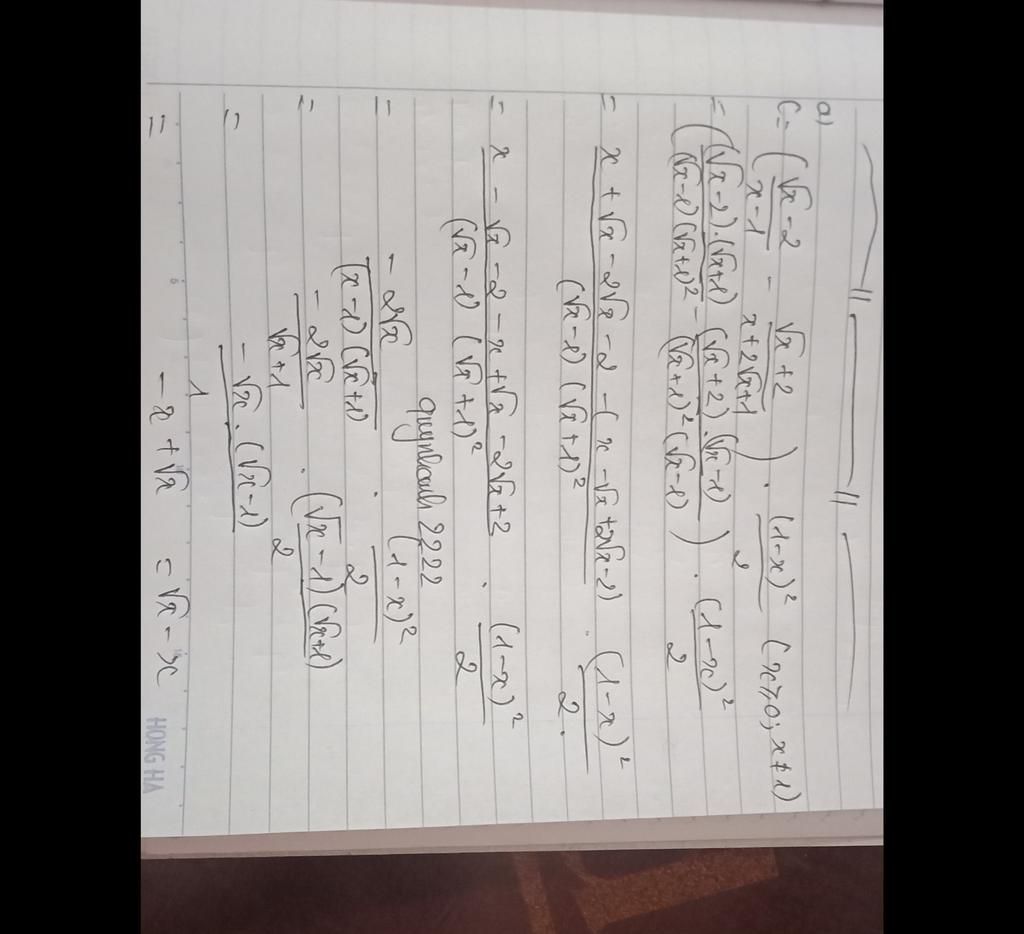 a)
C = ( (√x - 2)/(x - 1) - (√x + 2)/(x + 2√x + 1) ) . (1 - x)²/2 (x ≥ 0; x ≠ 1)
= ( (√x - 2).(√x + 1)/(√x - 1)(√x + 1)² - (√x + 2).(√x - 1)/(√x + 1)²(√x - 1) ) . (1 - x)²/2
= x + √x - 2√x - 2 - (x - √x + 2√x - 2)/(√x - 1)(√x + 1)² . (1 - x)²/2.
= x - √x - 2 - x + √x - 2√x + 2/(√x - 1)(√x + 1)² . (1 - x)²/2
quynhcuch 2222
= - 2√x/(x - 1)(√x + 1) . (1 - x)²/2
= - 2√x/√x + 1 . (√x - 1)(√x + 1)/2
= - √x . (√x - 1)/1
= - x + √x = √x - x
HONG HA